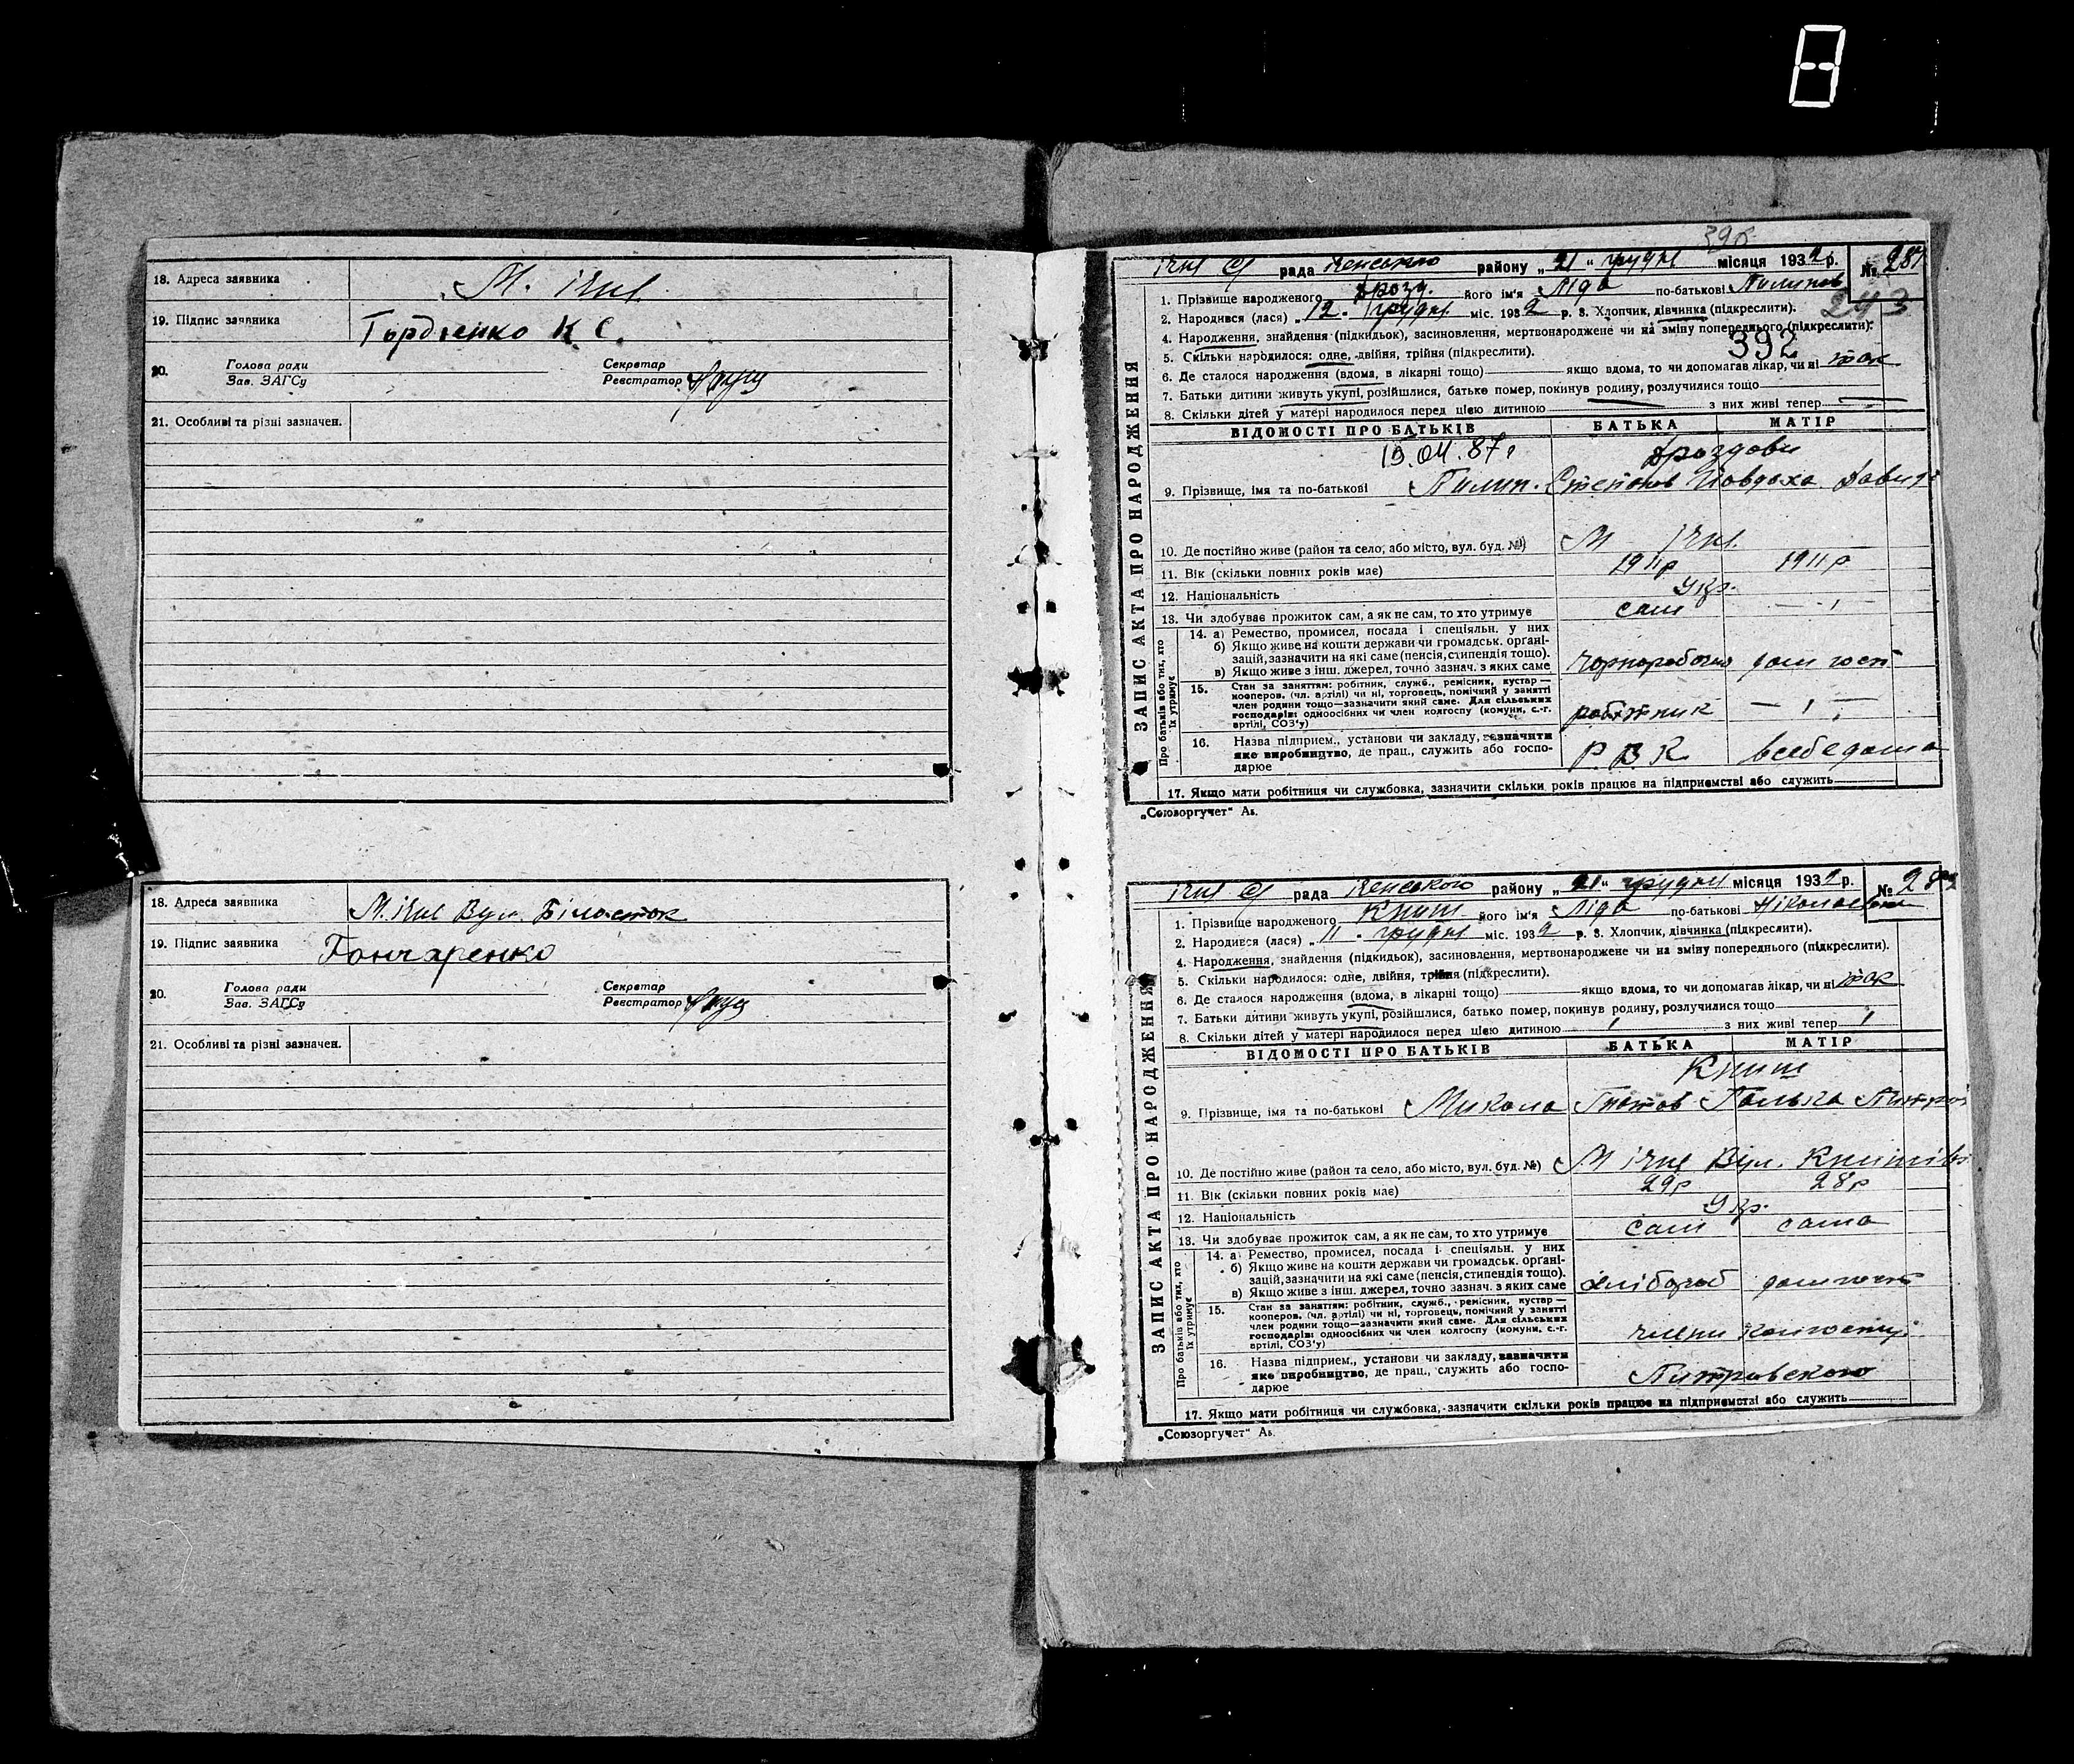 18. Адреса заявника М. Ічня
19. Підпис заявника Гордієнко К. С.
20. Голова ради Секретар
Зав. ЗАГСу Реєстратор
21. Особливі та різні зазначен.
18. Адреса заявника М. Ічня Вул. Білосток
19. Підпис заявника Гончаренко
20. Голова ради Секретар
Зав. ЗАГСу Реєстратор
21. Особливі та різні зазначен.
Ічня рада Іченського району „21“ грудня місяця 1932 р. № 281
1. Прізвище народженого Дрозд його ім'я Ліда по-батькові Пилипов
243
2. Народився (лася) „12“ грудня міс. 1932 р. 3. Хлопчик, дівчинка (підкреслити).
4. Народження, знайдення (підкидьок), засиновлення, мертвонароджене чи на зміну попереднього (підкреслити).
392
5. Скільки народилося: одне, двійня, трійня (підкреслити).
6. Де сталося народження (вдома, в лікарні тощо) якщо вдома, то чи допомагав лікар, чи ні так
7. Батьки дитини живуть укупі, розійшлися, батько помер, покинув родину, розлучилися тощо
8. Скільки дітей у матері народилося перед цією дитиною — з них живі тепер —
ЗАПИС АКТА ПРО НАРОДЖЕННЯ
ВІДОМОСТІ ПРО БАТЬКІВ БАТЬКА МАТІР
Дроздови
9. Прізвище, імя та по-батькові Пилип Степанов Йовдоха Давид
10. Де постійно живе (район та село, або місто, вул. буд. №) М Ічня
11. Вік (скільки повних років має) 1911 р 1911 р
12. Національність Укр.
13. Чи здобуває прожиток сам, а як не сам, то хто утримує сам — " —
Про батьків або тих, хто їх утримує
14. а) Ремество, промисел, посада і спеціяльн. у них
б) Якщо живе на кошти держави чи громадськ. органі-
зацій, зазначити на які саме (пенсія, стипендія тощо).
в) Якщо живе з інш. джерел, точно зазнач. з яких саме чорноробочий дом госп
15. Стан за заняттям: робітник, служб., ремісник, кустар —
кооперов. (чл. артілі) чи ні, торговець, помічний у занятті
член родини тощо—зазначити який саме. Для сільських
господарів: одноосібних чи член колгоспу (комуни, с.-г.
артілі, СОЗ'у) робітник — " —
16. Назва підприєм., установи чи закладу, зазначити
яке виробництво, де прац., служить або госпо-
дарює Р. В. К. всебе дома
17. Якщо мати робітниця чи службовка, зазначити скільки років працює на підприємстві або служить
„Союзоргучет“
Ічня рада Іченського району „21“ грудня місяця 1932 р. №
1. Прізвище народженого Книш його ім'я Ліда по-батькові Ніколаевна
2. Народився (лася) „11“ грудня міс. 1932 р. 3. Хлопчик, дівчинка (підкреслити).
4. Народження, знайдення (підкидьок), засиновлення, мертвонароджене чи на зміну попереднього (підкреслити).
5. Скільки народилося: одне, двійня, трійня (підкреслити).
6. Де сталося народження (вдома, в лікарні тощо) якщо вдома, то чи допомагав лікар, чи ні так
7. Батьки дитини живуть укупі, розійшлися, батько помер, покинув родину, розлучилися тощо
8. Скільки дітей у матері народилося перед цією дитиною 1 з них живі тепер 1
ЗАПИС АКТА ПРО НАРОДЖЕННЯ
ВІДОМОСТІ ПРО БАТЬКІВ БАТЬКА МАТІР
Книш
9. Прізвище, імя та по-батькові Микола Гнатов Галька
10. Де постійно живе (район та село, або місто, вул. буд. №) М Ічня Вул. Книшів
11. Вік (скільки повних років має) 29 р 28 р
12. Національність Укр.
13. Чи здобуває прожиток сам, а як не сам, то хто утримує сам сама
Про батьків або тих, хто їх утримує
14. а) Ремество, промисел, посада і спеціяльн. у них
б) Якщо живе на кошти держави чи громадськ. органі-
зацій, зазначити на які саме (пенсія, стипендія тощо).
в) Якщо живе з інш. джерел, точно зазнач. з яких саме хлібороб дом госп
15. Стан за заняттям: робітник, служб., ремісник, кустар —
кооперов. (чл. артілі) чи ні, торговець, помічний у занятті
член родини тощо—зазначити який саме. Для сільських
господарів: одноосібних чи член колгоспу (комуни, с.-г.
артілі, СОЗ'у) члени колгоспу
16. Назва підприєм., установи чи закладу, зазначити
яке виробництво, де прац., служить або госпо-
дарює Питровского
17. Якщо мати робітниця чи службовка, зазначити скільки років працює на підприємстві або служить
„Союзоргучет“